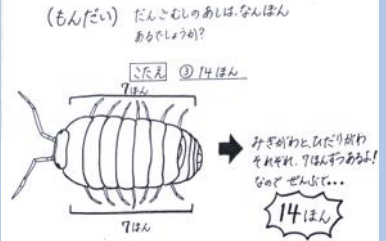 (もんだい) だんごむしのあしは、なんぼん
あるでしょうか?
こたえ ③ 14ほん
7ほん
みぎがわと、ひだりがわ
それぞれ、7ほんずつあるよ!
なので ぜんぶで...
14ほん
7ほん